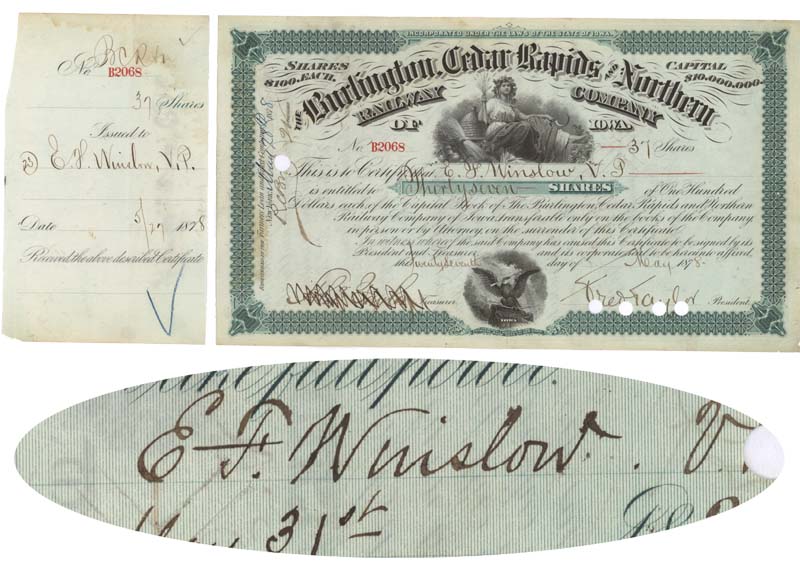 No BCR&N
B2068
37 Shares
Issued to
23) E. F. Winslow, V.P.
Date 5/27 1878
Received, the above described Certificate
INCORPORATED UNDER THE LAWS OF THE STATE OF IOWA.
SHARES $100. EACH.
CAPITAL $10,000,000
THE Burlington, Cedar Rapids AND Northern
RAILWAY COMPANY
OF IOWA.
No B2068 37 Shares
This is to Certify that E. F. Winslow, V. P
is entitled to Thirty seven SHARES of One Hundred
Dollars each of the Capital Stock of The Burlington, Cedar Rapids and Northern
Railway Company of Iowa, transferable only on the books of the Company
in person or by Attorney, on the surrender of this Certificate.
In witness whereof the said Company has caused this Certificate to be signed by its
President and Treasurer and its corporate seal to be hereinto affixed,
the twenty seventh day of May 1878.
Treasurer. Fred Taylor President.
IOWA
full power.
E. F. Winslow. V.
May 31st